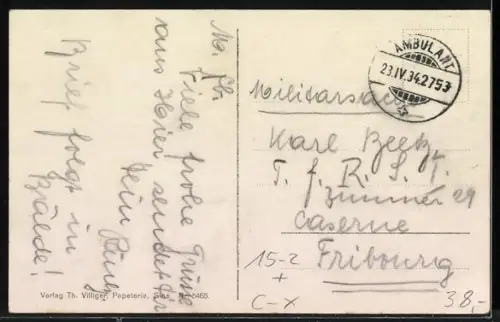 M. Lb.
Viele frohe Grüsse
aus Hier sendet Dir
Dein
Brief folgt in
Bälde!
Verlag Th. Villiger, Papeterie, 5465
AMBULANT
23.IV.34. 2753
Militärsache
Karl
T. f. R. S. 1.
Zimmer 29
Caserne
Fribourg
15-2
+
C-X
38,-